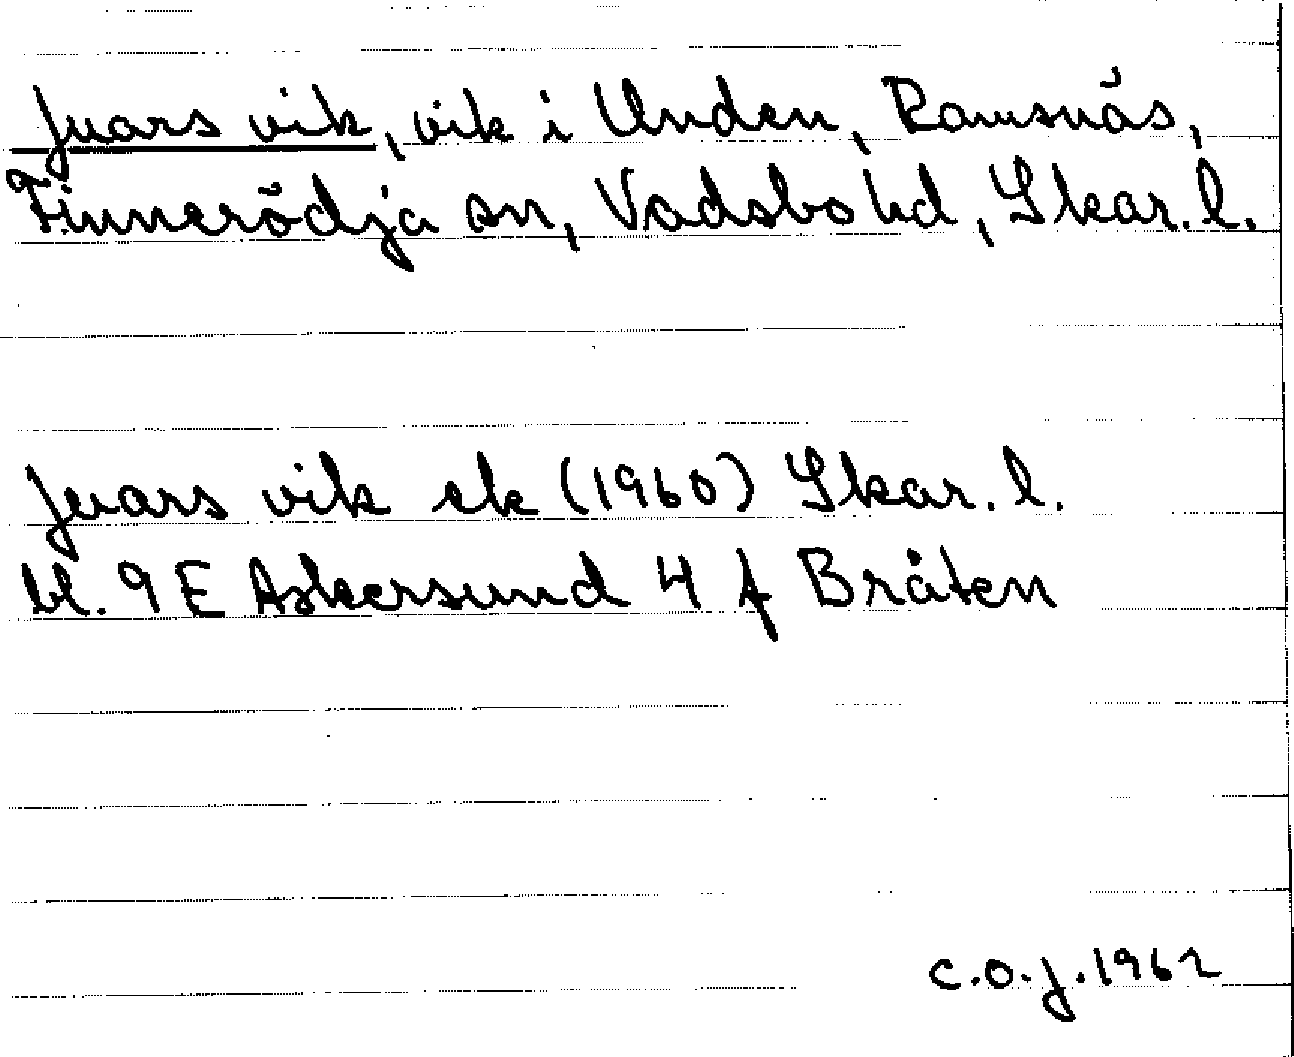 Jvars vik, vik i Unden, Ramsnäs,
Finnerödja sn, Vadsbo hd, Skar. l.
Jvars vik ek (1960) Skar. l.
bl. 9 E Askersund 4 f Bråten
C.O.J. 1962